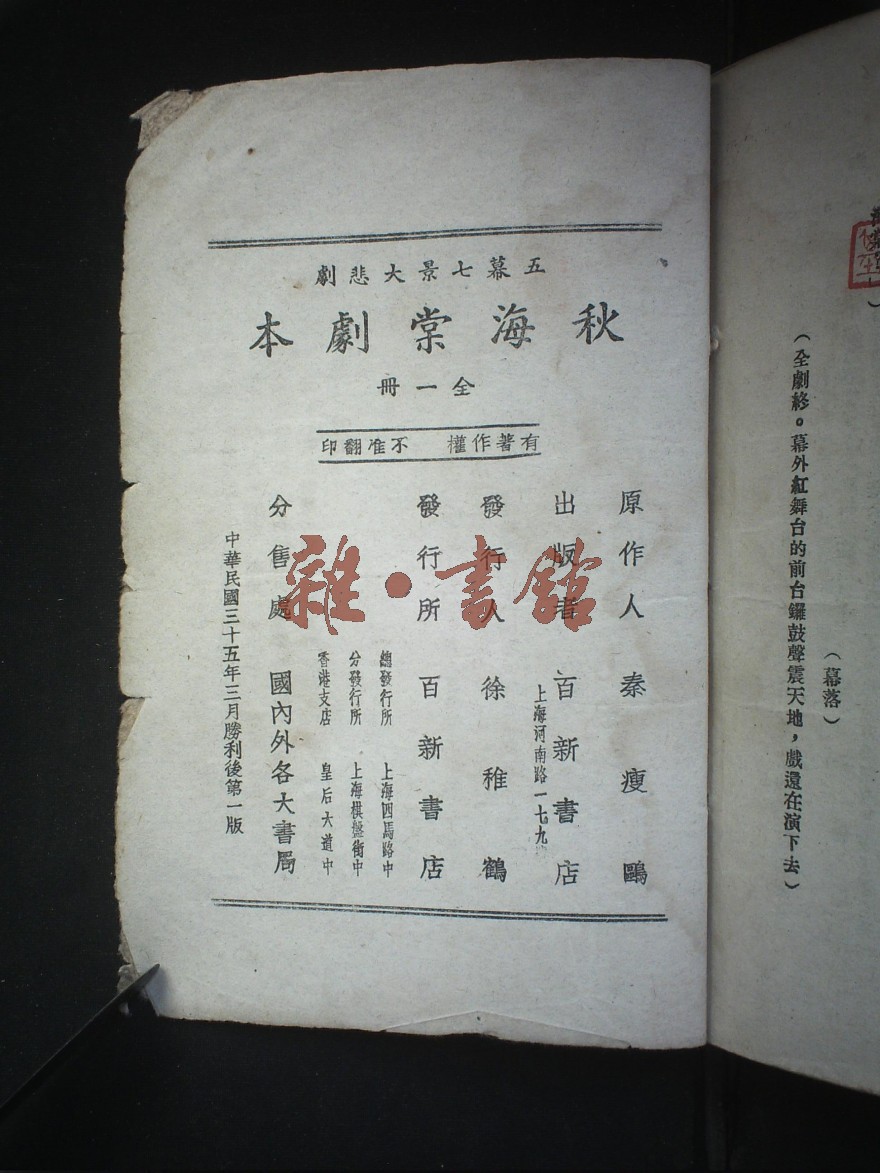 五幕七景大悲劇
秋海棠劇本
全一冊
有著作權 不准翻印
原作人 秦瘦鷗
出版者 百新書店
上海河南路一七九
發行人 徐稚鶴
發行所 百新書店
總發行所 上海四馬路中
分發行所 上海棋盤街中
香港支店 皇后大道中
分售處 國內外各大書局
中華民國三十五年三月勝利後第一版
雜·書館
（幕落）
（全劇終。幕外紅舞台的前台鑼鼓聲震天地，戲還在演下去）